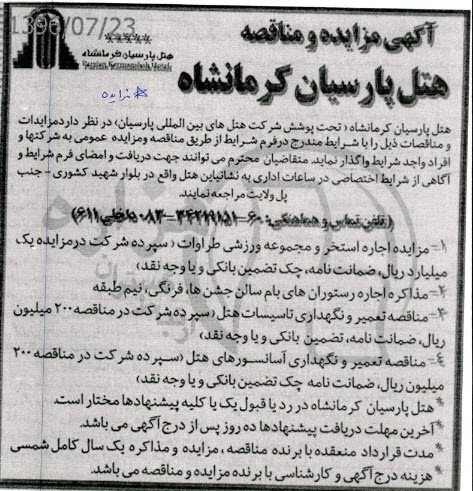 1396/07/23
آگهی مزایده و مناقصه
هتل پارسیان کرمانشاه
Parsian Kermanshah Hotel
مزایده
هتل پارسیان کرمانشاه
هتل پارسیان کرمانشاه (تحت پوشش شرکت هتل های بین المللی پارسیان) در نظر دارد مزایدات
و مناقصات ذیل را با شرایط مندرج در فرم شرایط از طریق مناقصه و مزایده عمومی به شرکتها و
افراد واجد شرایط واگذار نماید. متقاضیان محترم می توانند جهت دریافت و امضای فرم شرایط و
آگاهی از شرایط اختصاصی در ساعات اداری به نشانی این هتل واقع در بلوار شهید کشوری - جنب
پل ولایت مراجعه نمایند.
(تلفن تماس و هماهنگی: ۶۰-۳۴۲۱۹۱۵۱-۰۸۳ داخلی ۶۱۱)
۱- مزایده اجاره استخر و مجموعه ورزشی طراوات (سپرده شرکت در مزایده یک
میلیارد ریال، ضمانت نامه، چک تضمین بانکی و یا وجه نقد)
۲- مذاکره اجاره رستوران های بام سالن جشن ها، فرنگی، نیم طبقه
۳- مناقصه تعمیر و نگهداری تاسیسات هتل (سپرده شرکت در مناقصه ۲۰۰ میلیون
ریال، ضمانت نامه، تضمین بانکی و یا وجه نقد)
۴- مناقصه تعمیر و نگهداری آسانسورهای هتل (سپرده شرکت در مناقصه ۲۰۰
میلیون ریال، ضمانت نامه چک تضمین بانکی و یا وجه نقد)
* هتل پارسیان کرمانشاه در رد یا قبول یک یا کلیه پیشنهادها مختار است.
* آخرین مهلت دریافت پیشنهادها ده روز پس از درج آگهی می باشد.
* مدت قرارداد منعقده با برنده مناقصه، مزایده و مذاکره یک سال کامل شمسی
* هزینه درج آگهی و کارشناسی با برنده مزایده و مناقصه می باشد.